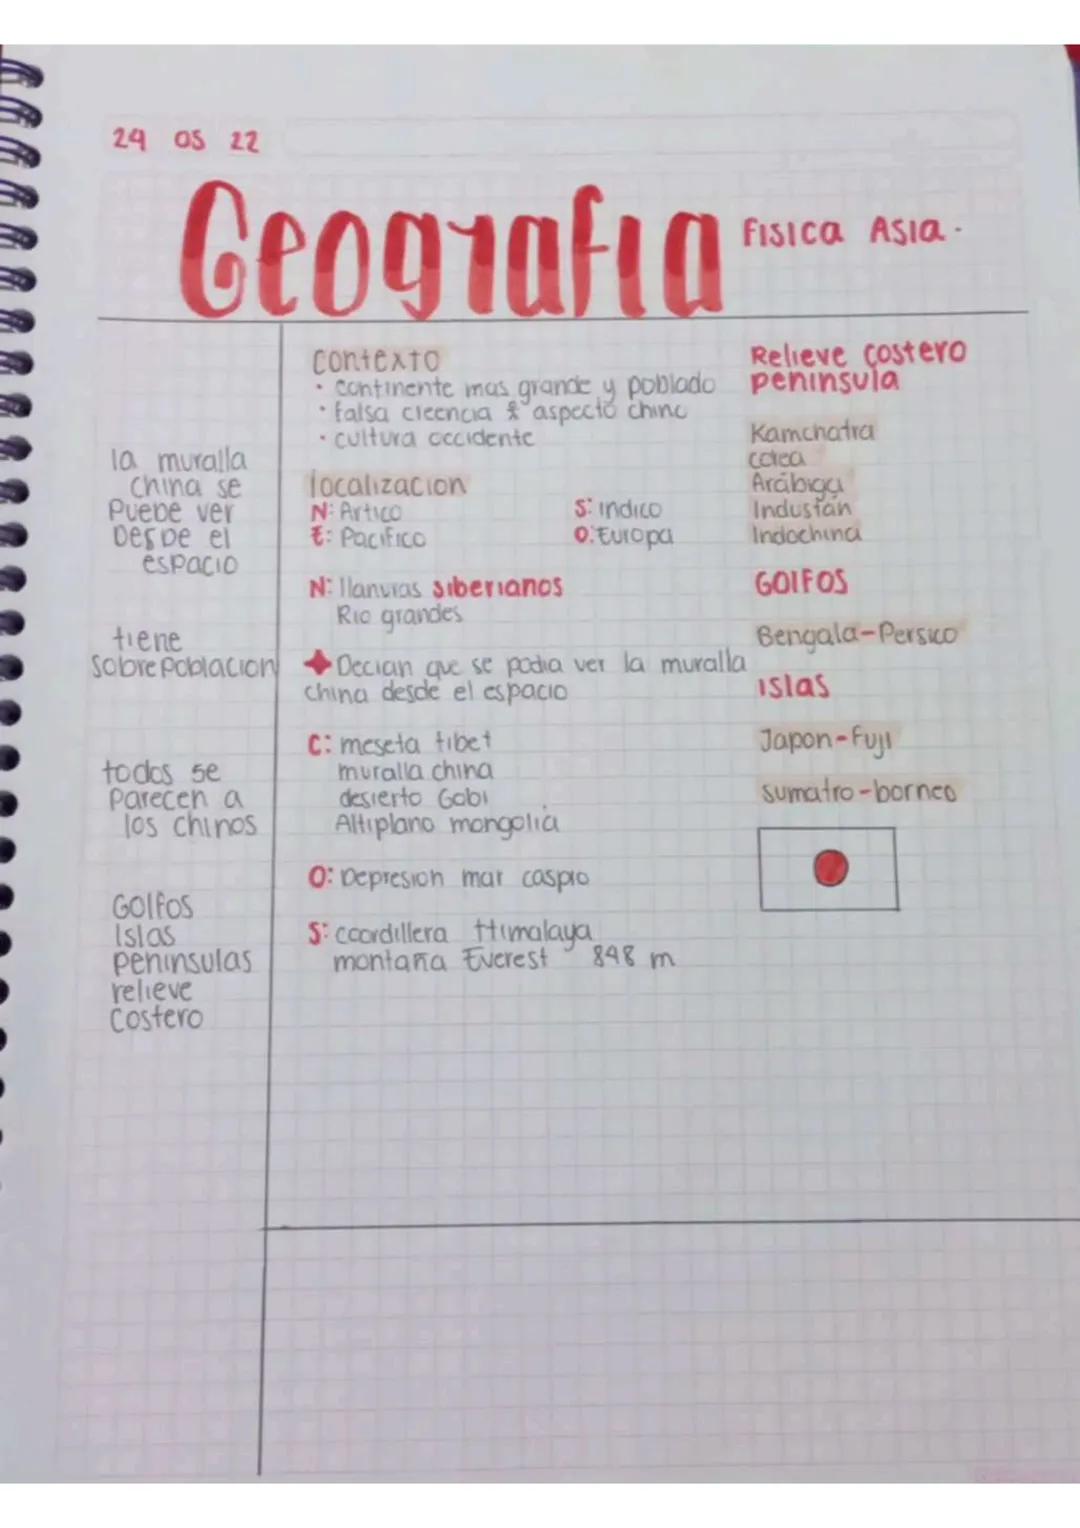 24 05 22
Geografia FISICA ASIA.
la muralla
china se
Puede ver
Desde el
espacio
tiene
Sobrepoblacion
todos se
Parecen a
los chinos
GOlfos
Islas
peninsulas
relieve
Costero
contexto
· continente mas grande y poblado
· falsa creencia & aspecto chino
· cultura occidente
localizacion
N: Artico S: indico
E: Pacifico O: Europa
N: llanuras siberianos
Rio grandes
Decian que se podia ver la muralla
china desde el espacio
C: meseta tibet
muralla china
desierto Gobi
Altiplano mongolia
O: Depresion mar caspio
S: coordillera Himalaya
montaña Everest 848 m
Relieve costero
peninsula
Kamchatra
corea
Arábiga
Industan
Indochina
GOlFOS
Bengala-Persico
islas
Japon-Fuji
sumatro-borneo